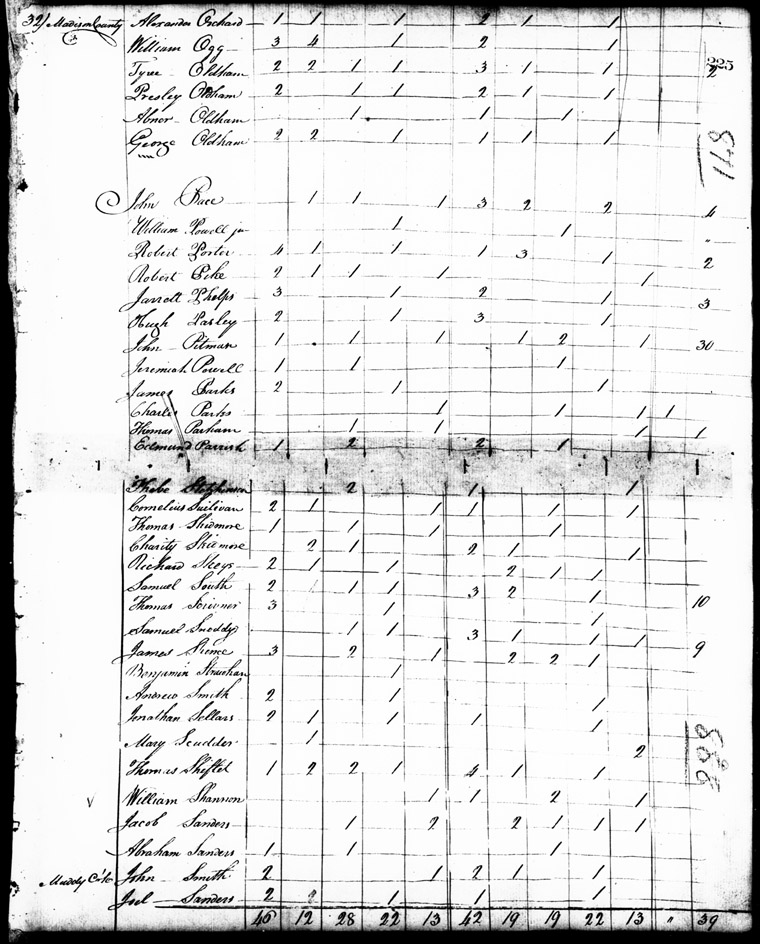 32/ Madison County Alexander Orchard 1 1 1 2 1 1
William Ogg 3 4 1 2 1
225
Tyree Oldham 2 2 1 1 3 1 1 2
Presley Oldham 2 1 1 2 1 1
Abner Oldham 1 1 1
George Oldham 2 2 1 1 1 1
871
John Pace 1 1 1 3 2 2 4
William Powell jr 1 1 "
Robert Porter 4 1 1 1 3 1 2
Robert Pike 2 1 1 1 1
Jarrott Phelps 3 1 2 1 3
Hugh Pasley 2 1 3 1
John Pitman 1 1 1 1 2 1 30
Jeremiah Powell 1 1 1
James Parks 2 1 1
Charles Parks 1 1 1 1
Thomas Parham 1 1 1 1
Edmund Parrish 1 2 2 1
Phebe 2 1 1
Cornelius Sullivan 2 1 1 1 1 1
Thomas Skidmore 1 1 1 1
Charity Skidmore 2 1 2 1 1
Richard 2 1 1 2 1 1
Samuel South 2 1 1 1 3 2 1
Thomas Scrivner 3 1 1 10
Samuel Snoddy 1 1 3 1 1 1
James 3 2 1 2 2 1 9
Benjamin 1
Andrew Smith 2 1 1
Jonathan Sellars 2 1 1 1 1
Mary Scudder 1 2
888
Thomas Shiflet 1 2 2 1 4 1 1
William Shannon 1 1 2 1
Jacob Sanders 1 2 2 1 1 1
Abraham Sanders 1 1 1
Muddy Crk John Smith 2 1 2 1 1
Joel Sanders 2 2 1 1 1
46 12 28 22 13 42 19 19 22 13 " 39